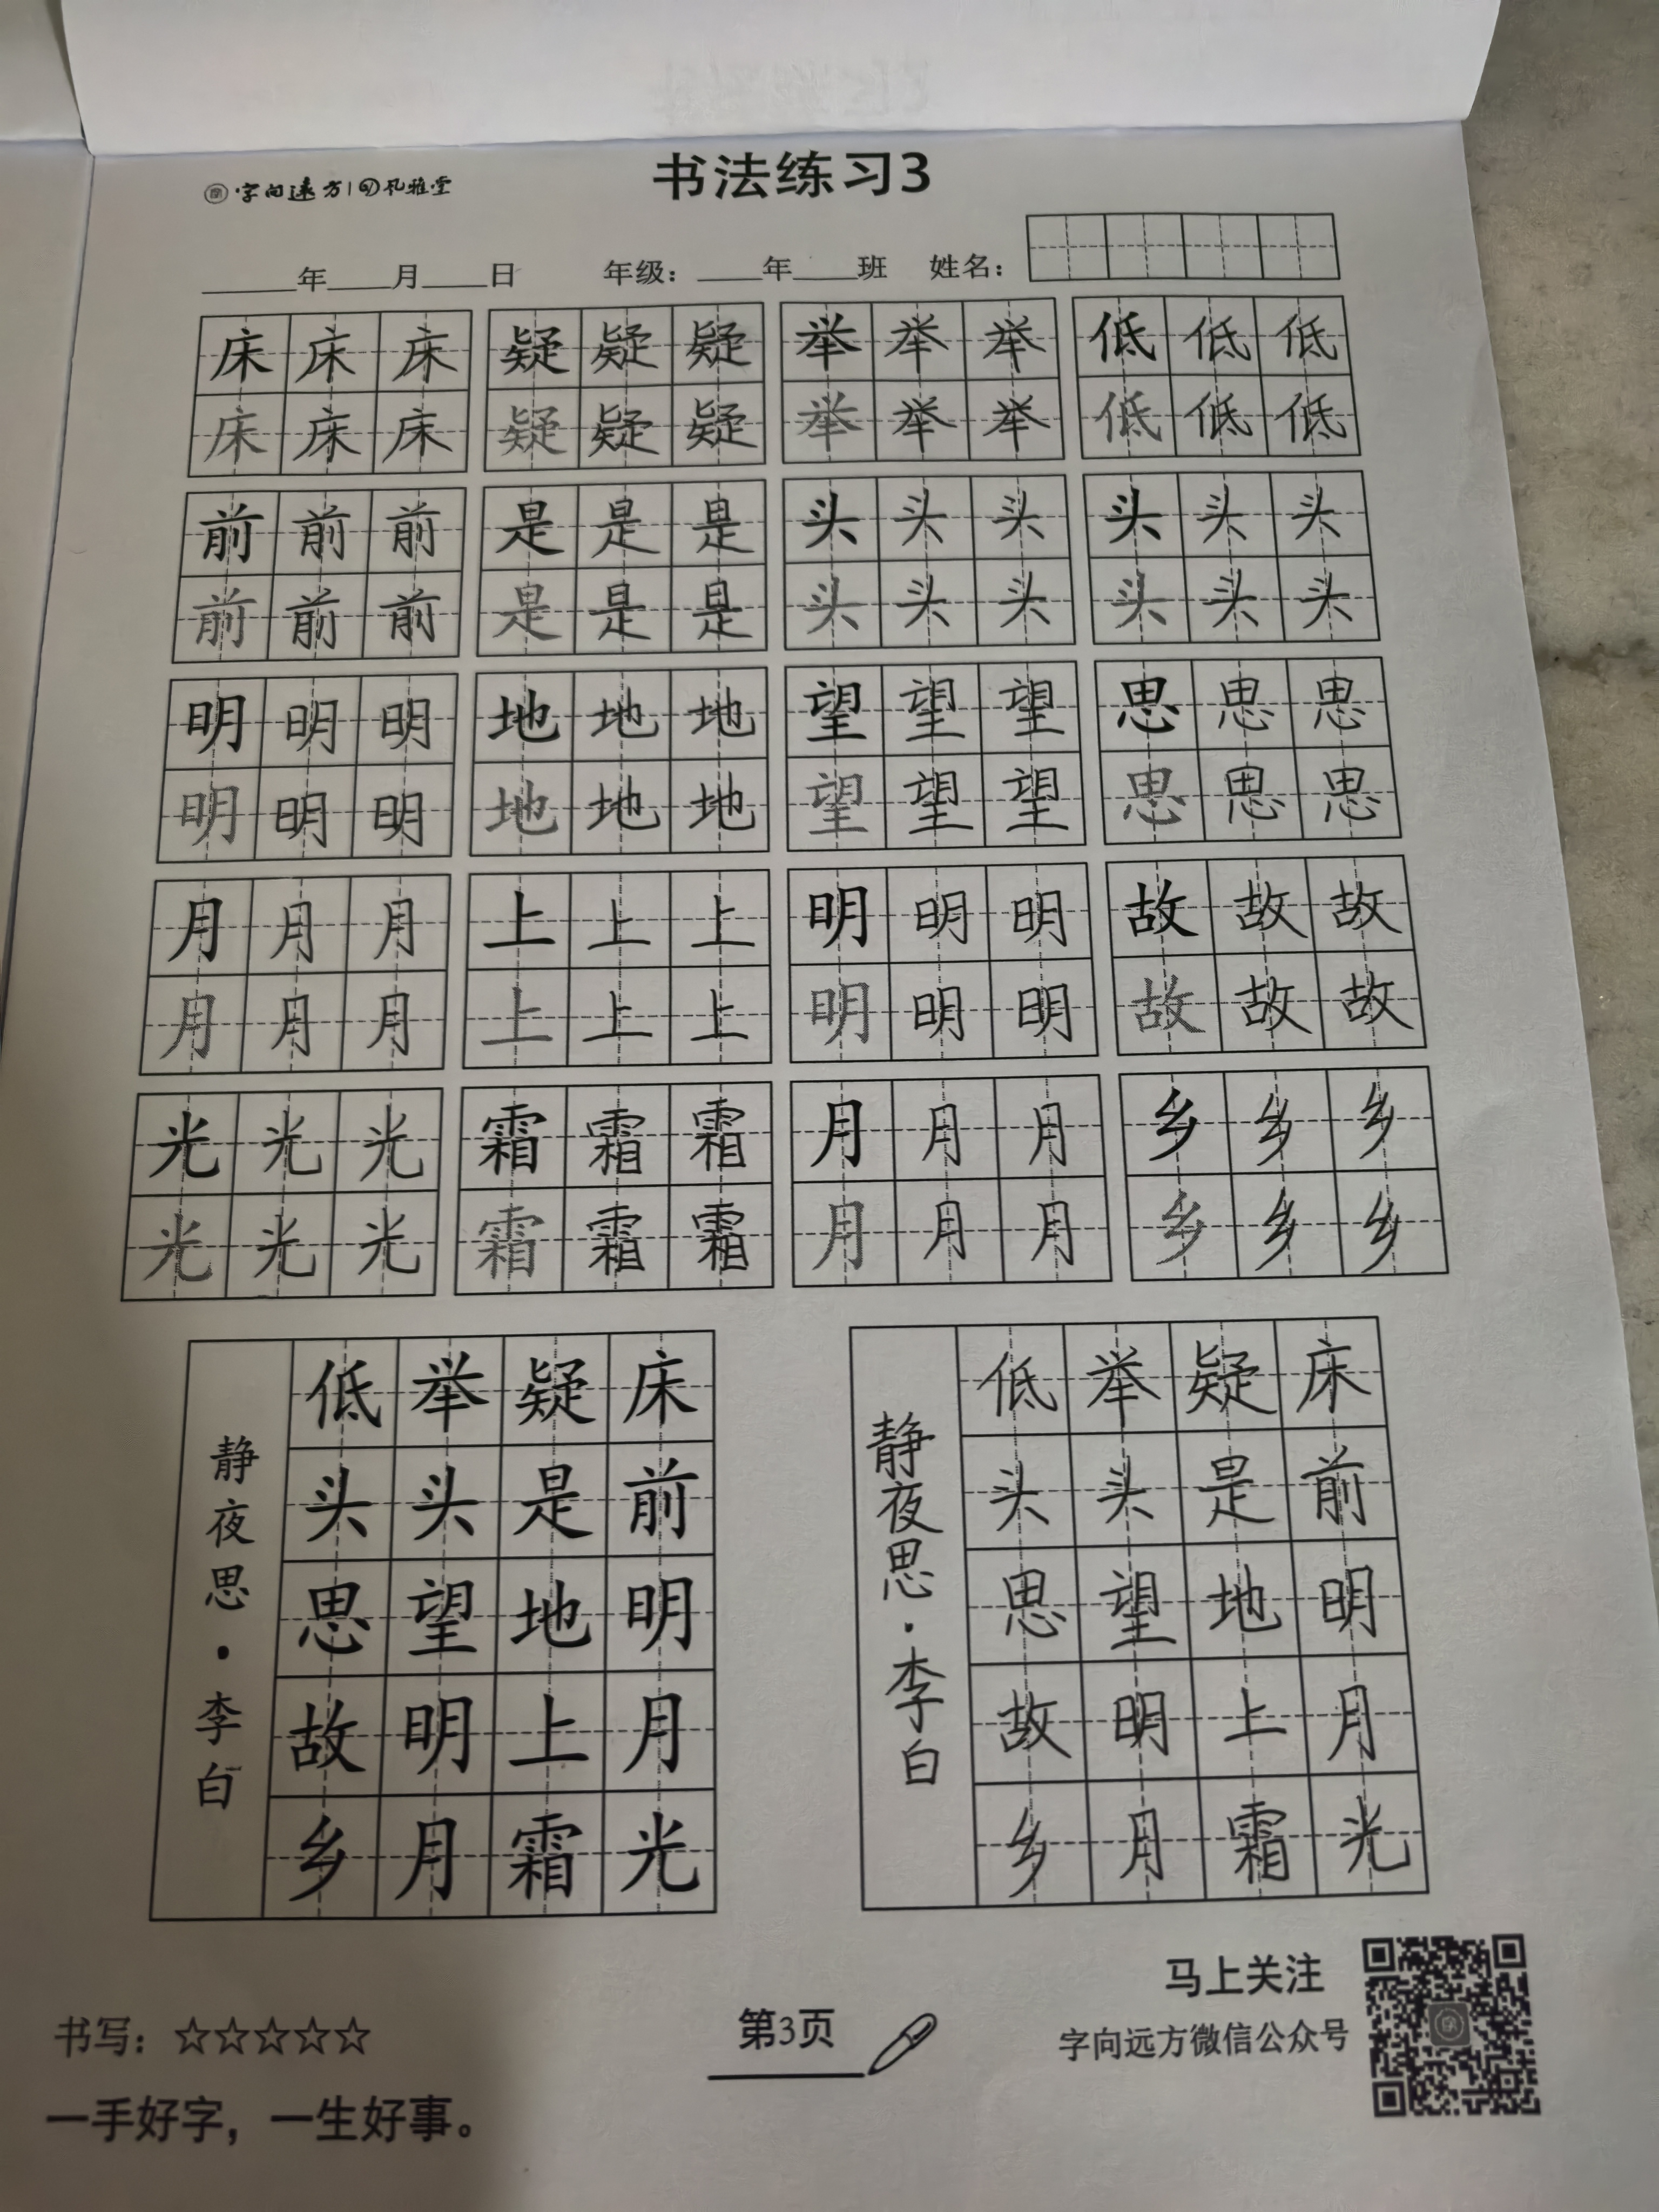 字向远方 | 风雅堂
书法练习3
____年____月____日 年级：____年____班 姓名：
床床床 疑疑疑 举举举 低低低
床床床 疑疑疑 举举举 低低低
前前前 是是是 头头头 头头头
前前前 是是是 头头头 头头头
明明明 地地地 望望望 思思思
明明明 地地地 望望望 思思思
月月月 上上上 明明明 故故故
月月月 上上上 明明明 故故故
光光光 霜霜霜 月月月 乡乡乡
光光光 霜霜霜 月月月 乡乡乡
床前明月光
疑是地上霜
举头望明月
低头思故乡
静夜思·李白
床前明月光
疑是地上霜
举头望明月
低头思故乡
静夜思·李白
书写：☆☆☆☆☆
一手好字，一生好事。
第3页
马上关注
字向远方微信公众号